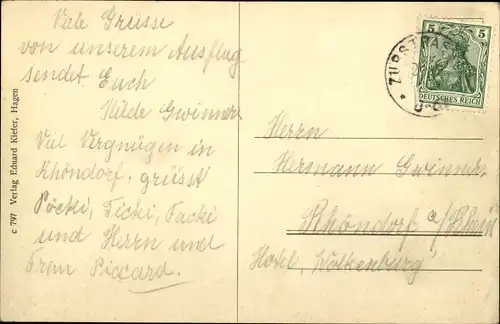 Viele Grüsse
von unserem Ausflug
sendet Euch
Hilde Gwinner
Viel Vergnügen in
Rhöndorf, grüsst
Pöcki, Ticki, Tacki
und Herrn und
Frau Piccard.
c 797 Verlag Eduard Kiefer, Hagen
ZURSTRAS
5 5
DEUTSCHES REICH
Herrn
Hermann Gwinner,
Rhöndorf a/Rhein
Hotel, Wolkenburg,